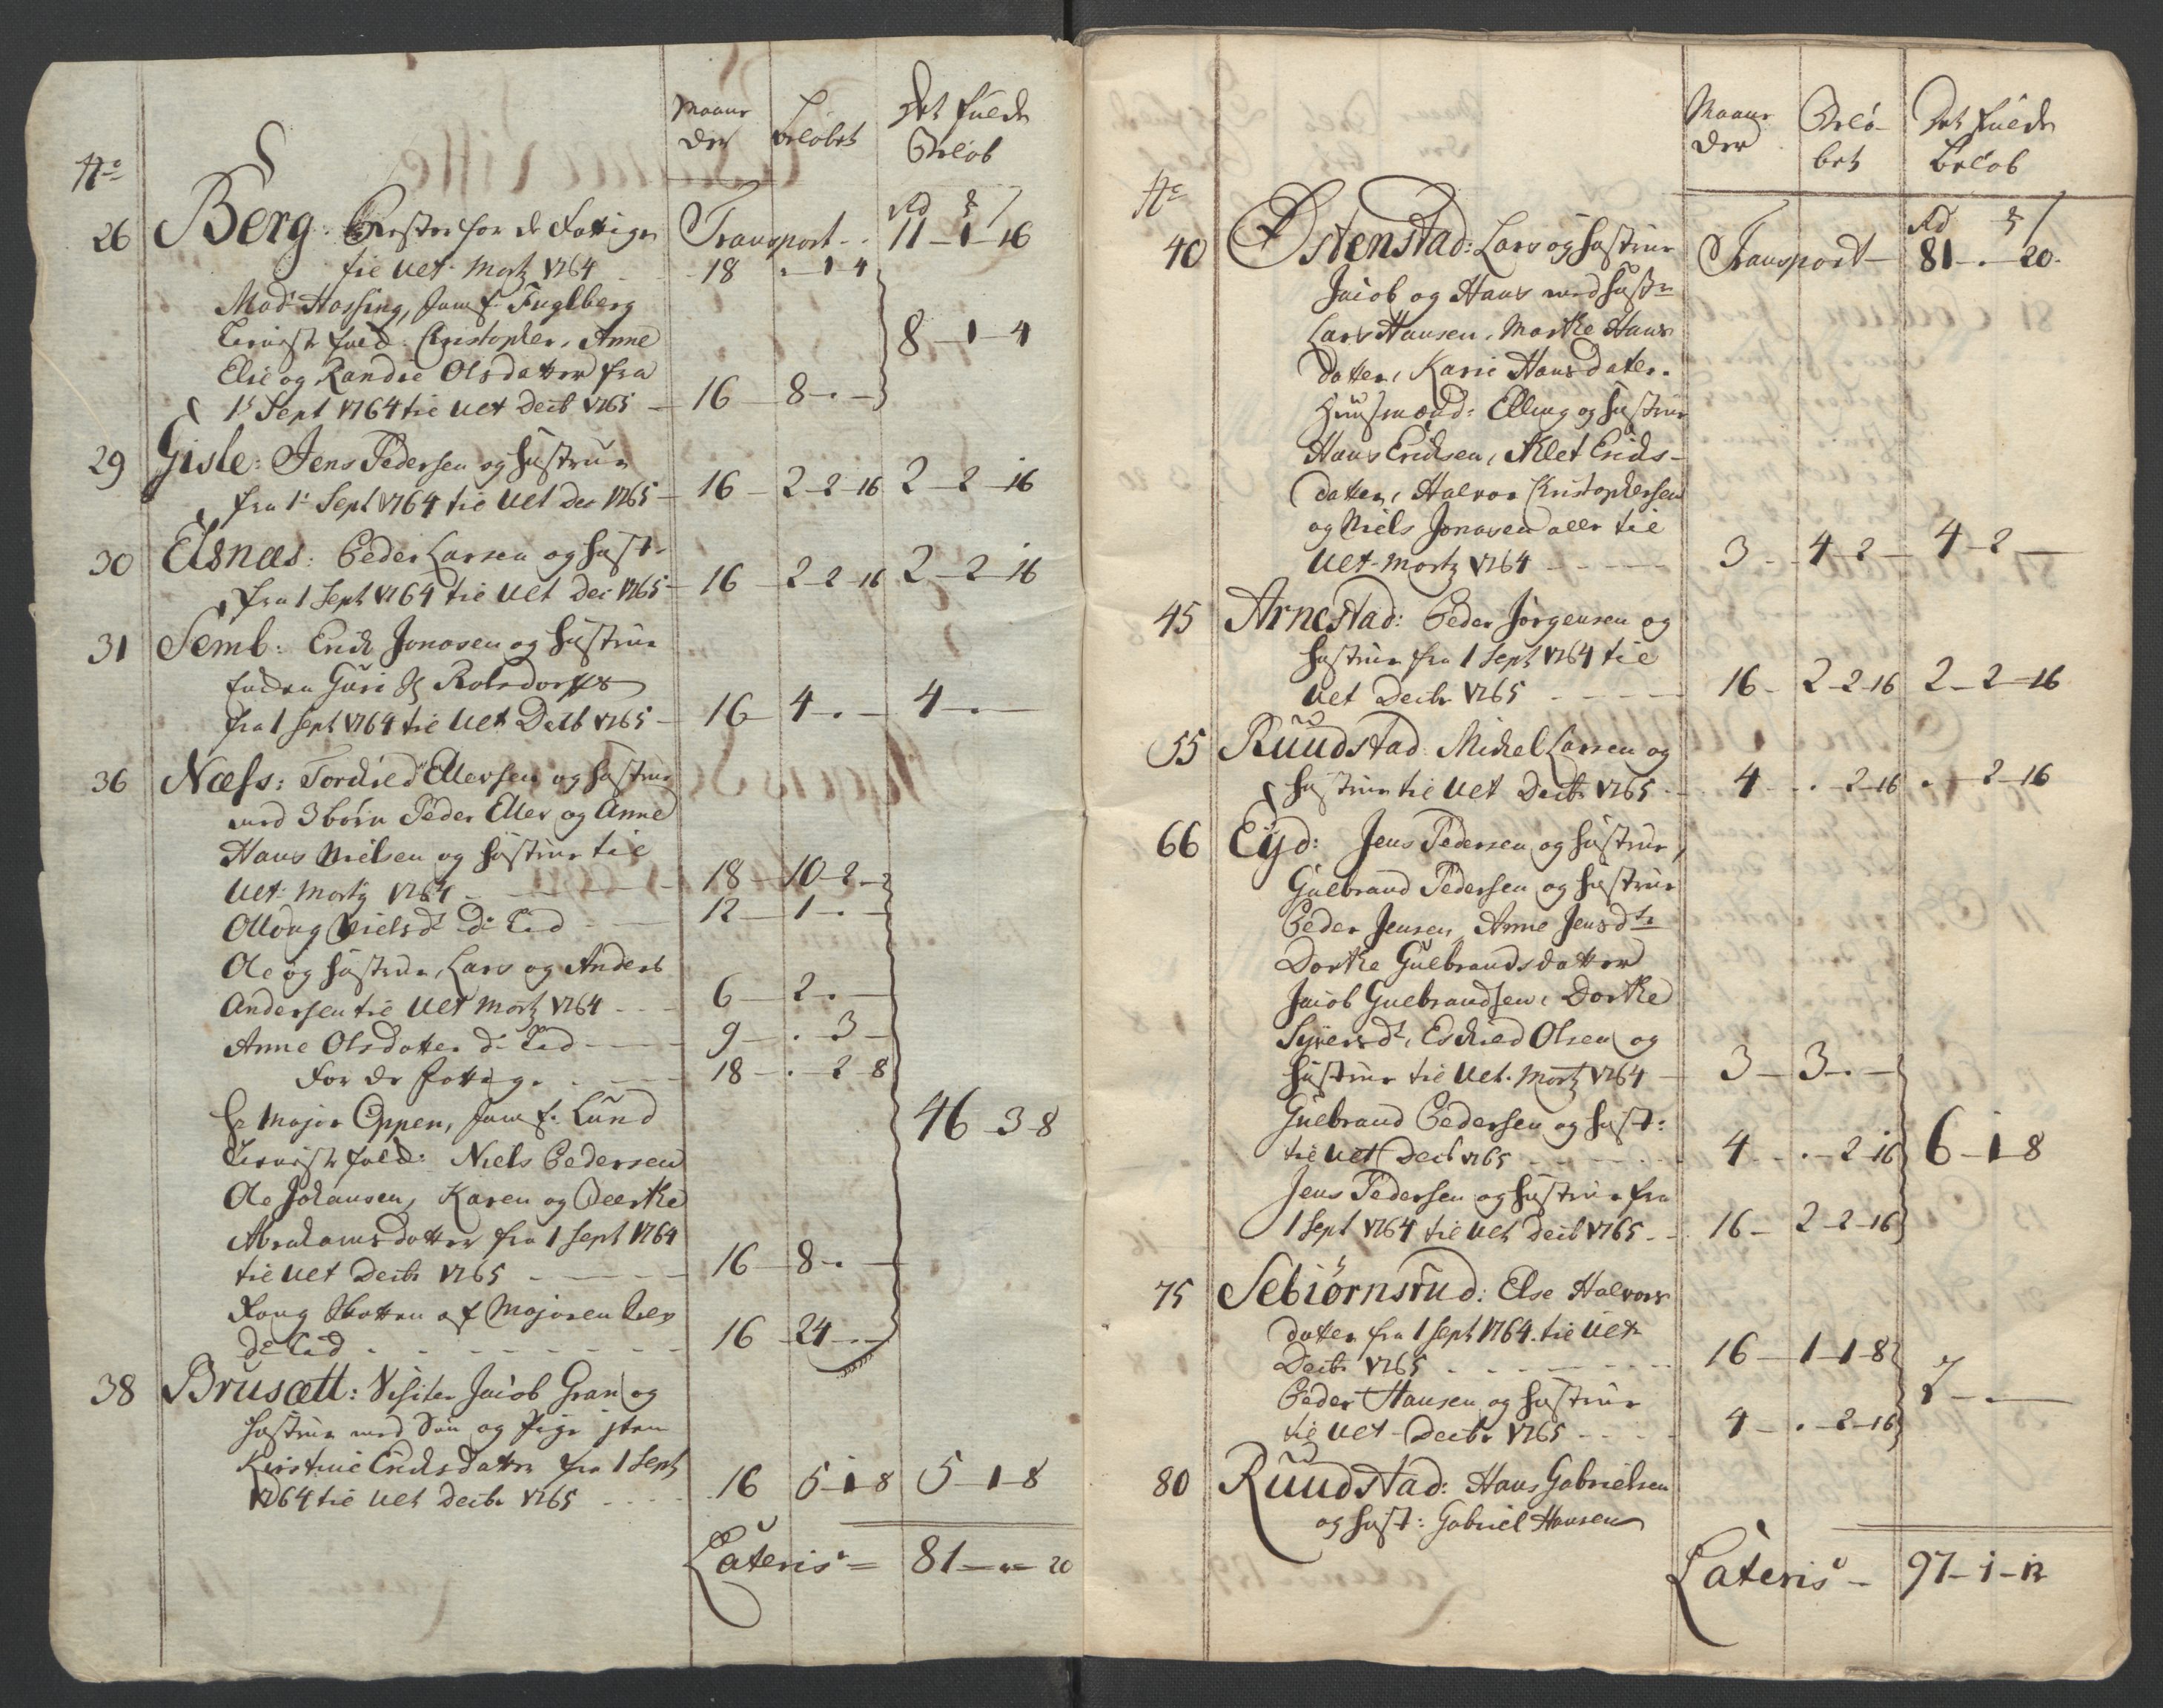 No
Maane
der
Beløbet
Det fulde
Beløb
26 Berg: Rester for de Fattige Transport - - 11 - 1 - 16
til Ult. Martz 1764 18 . - 1 - 4
Mad: Hassing, Jomf: Fuglberg
Tieniste folk: Cristopher, Anne 8 - 1 - 4
Elie og Randie Olsdatter fra
1t Sept 1764 til Ult Decb 1765 - 16 - 8 - . -
29 Gisle: Jens Pedersen og Hustrue
fra 1t Sept 1764 til Ult Dec 1765 - 16 - 2 - 2 - 16 2 - 2 - 16
30 Elsnæs: Peder Larsen og Hust:
fra 1 Sept 1764 til Ult Dec 1765 - 16 - 2 - 2 - 16 2 - 2 - 16
31 Semb: Erich Jonasen og Hustrue
Guri
fra 1 Sept 1764 til Ult Decb 1765 - 16 - 4 - . - 4 - . -
36 Næss: Torchild Ellevsen og Hustrue
med 3 børn Peder Ellev og Anne
Hans Nielsen og Hustrue til
Ult. Martz 1764 - - 18 - 10 - 2 -
Nielsd: do Tid - 12 - 1 - . -
Ole og Hustrue, Lars og Anders
Andersen til Ult Martz 1764 - - - 6 - 2 - . -
Anne Olsdatter do Tid - - - 9 - . - 3 -
For de fattige - - - 18 - . - 2 - 8
Hr Major Oppen, Jomf: Lund 46 - 3 - 8
Tieniste folk: Niels Pedersen
Ole Johansen, Karen og Dorthe
Abrahamsdatter fra 1 Sept 1764
til Ult Decbr 1765 - - - 16 - 8 - . -
Rang Skatten af Majoren
do Tid - - - 16 - 24 - . -
38 Brusætt: Visiter Jacob Gran og
Hustrue med Søn og Pige
Kirstine Erichsdatter fra 1 Sept
1764 til Ult Decbr 1765 - - - 16 5 - 1 - 8 5 - 1 - 8
Lateris = 81 - " - 20
No
Maane
der
Belø-
bet
Det fulde
Beløb
40 Østenstad: Lars og Hustrue Transport - 81 - . - 20
Jacob og Hans med Hustr
Lars Hansen, Marthe Hans
datter, Karie Hansdater.
Huusmænd: Elling og Hustrue
Hans Erichsen, Allet Erichs-
datter, Halvor Christophersen
og Niels Jonasen alle til
Ult. Martz 1764 - - - - 3 - - 4 - 2 - 4 - 2 -
45 Arnestad: Peder Jørgensen og
Hustrue fra 1 Sept 1764 til
Ult Decbr 1765 - - - - 16 - 2 - 2 - 16 2 - 2 - 16
55 Ruudstad: Michel Larsen og
Hustrue til Ult Decbr 1765 - - 4 - . - 2 - 16 . - 2 - 16
66 Eyd: Jens Pedersen og Hustrue,
Gulbrand Pedersen og Hustrue
Peder Jensen, Anne Jensdtr
Dorthe Gulbrandsdatter
Jacob Gulbrandsen, Dorthe
Syversdt, Eschild Olsen og
Hustrue til Ult. Martz 1764 - 3 - 3 - . -
Gulbrand Pedersen og Hust:
til Ult Decb 1765 - - - 4 - . - 2 - 16 6 - 1 - 8
Jens Pedersen og Hustrue fra
1 Sept 1764 til Ult Decb 1765 - - 16 - 2 - 2 - 16
75 Sebiørnsrud: Else Halvors
datter fra 1 Sept 1764 til Ult
Decbr 1765 - - - - 16 - 1 - 1 - 8
Peder Hansen og Hustrue 2 - . -
til Ult - Decbr 1765 - - - 4 - . - 2 - 16
80 Ruudstad: Hans Gabrielsen
og Hust: Gabriel Hansen
Lateris - 97 - 1 - 12